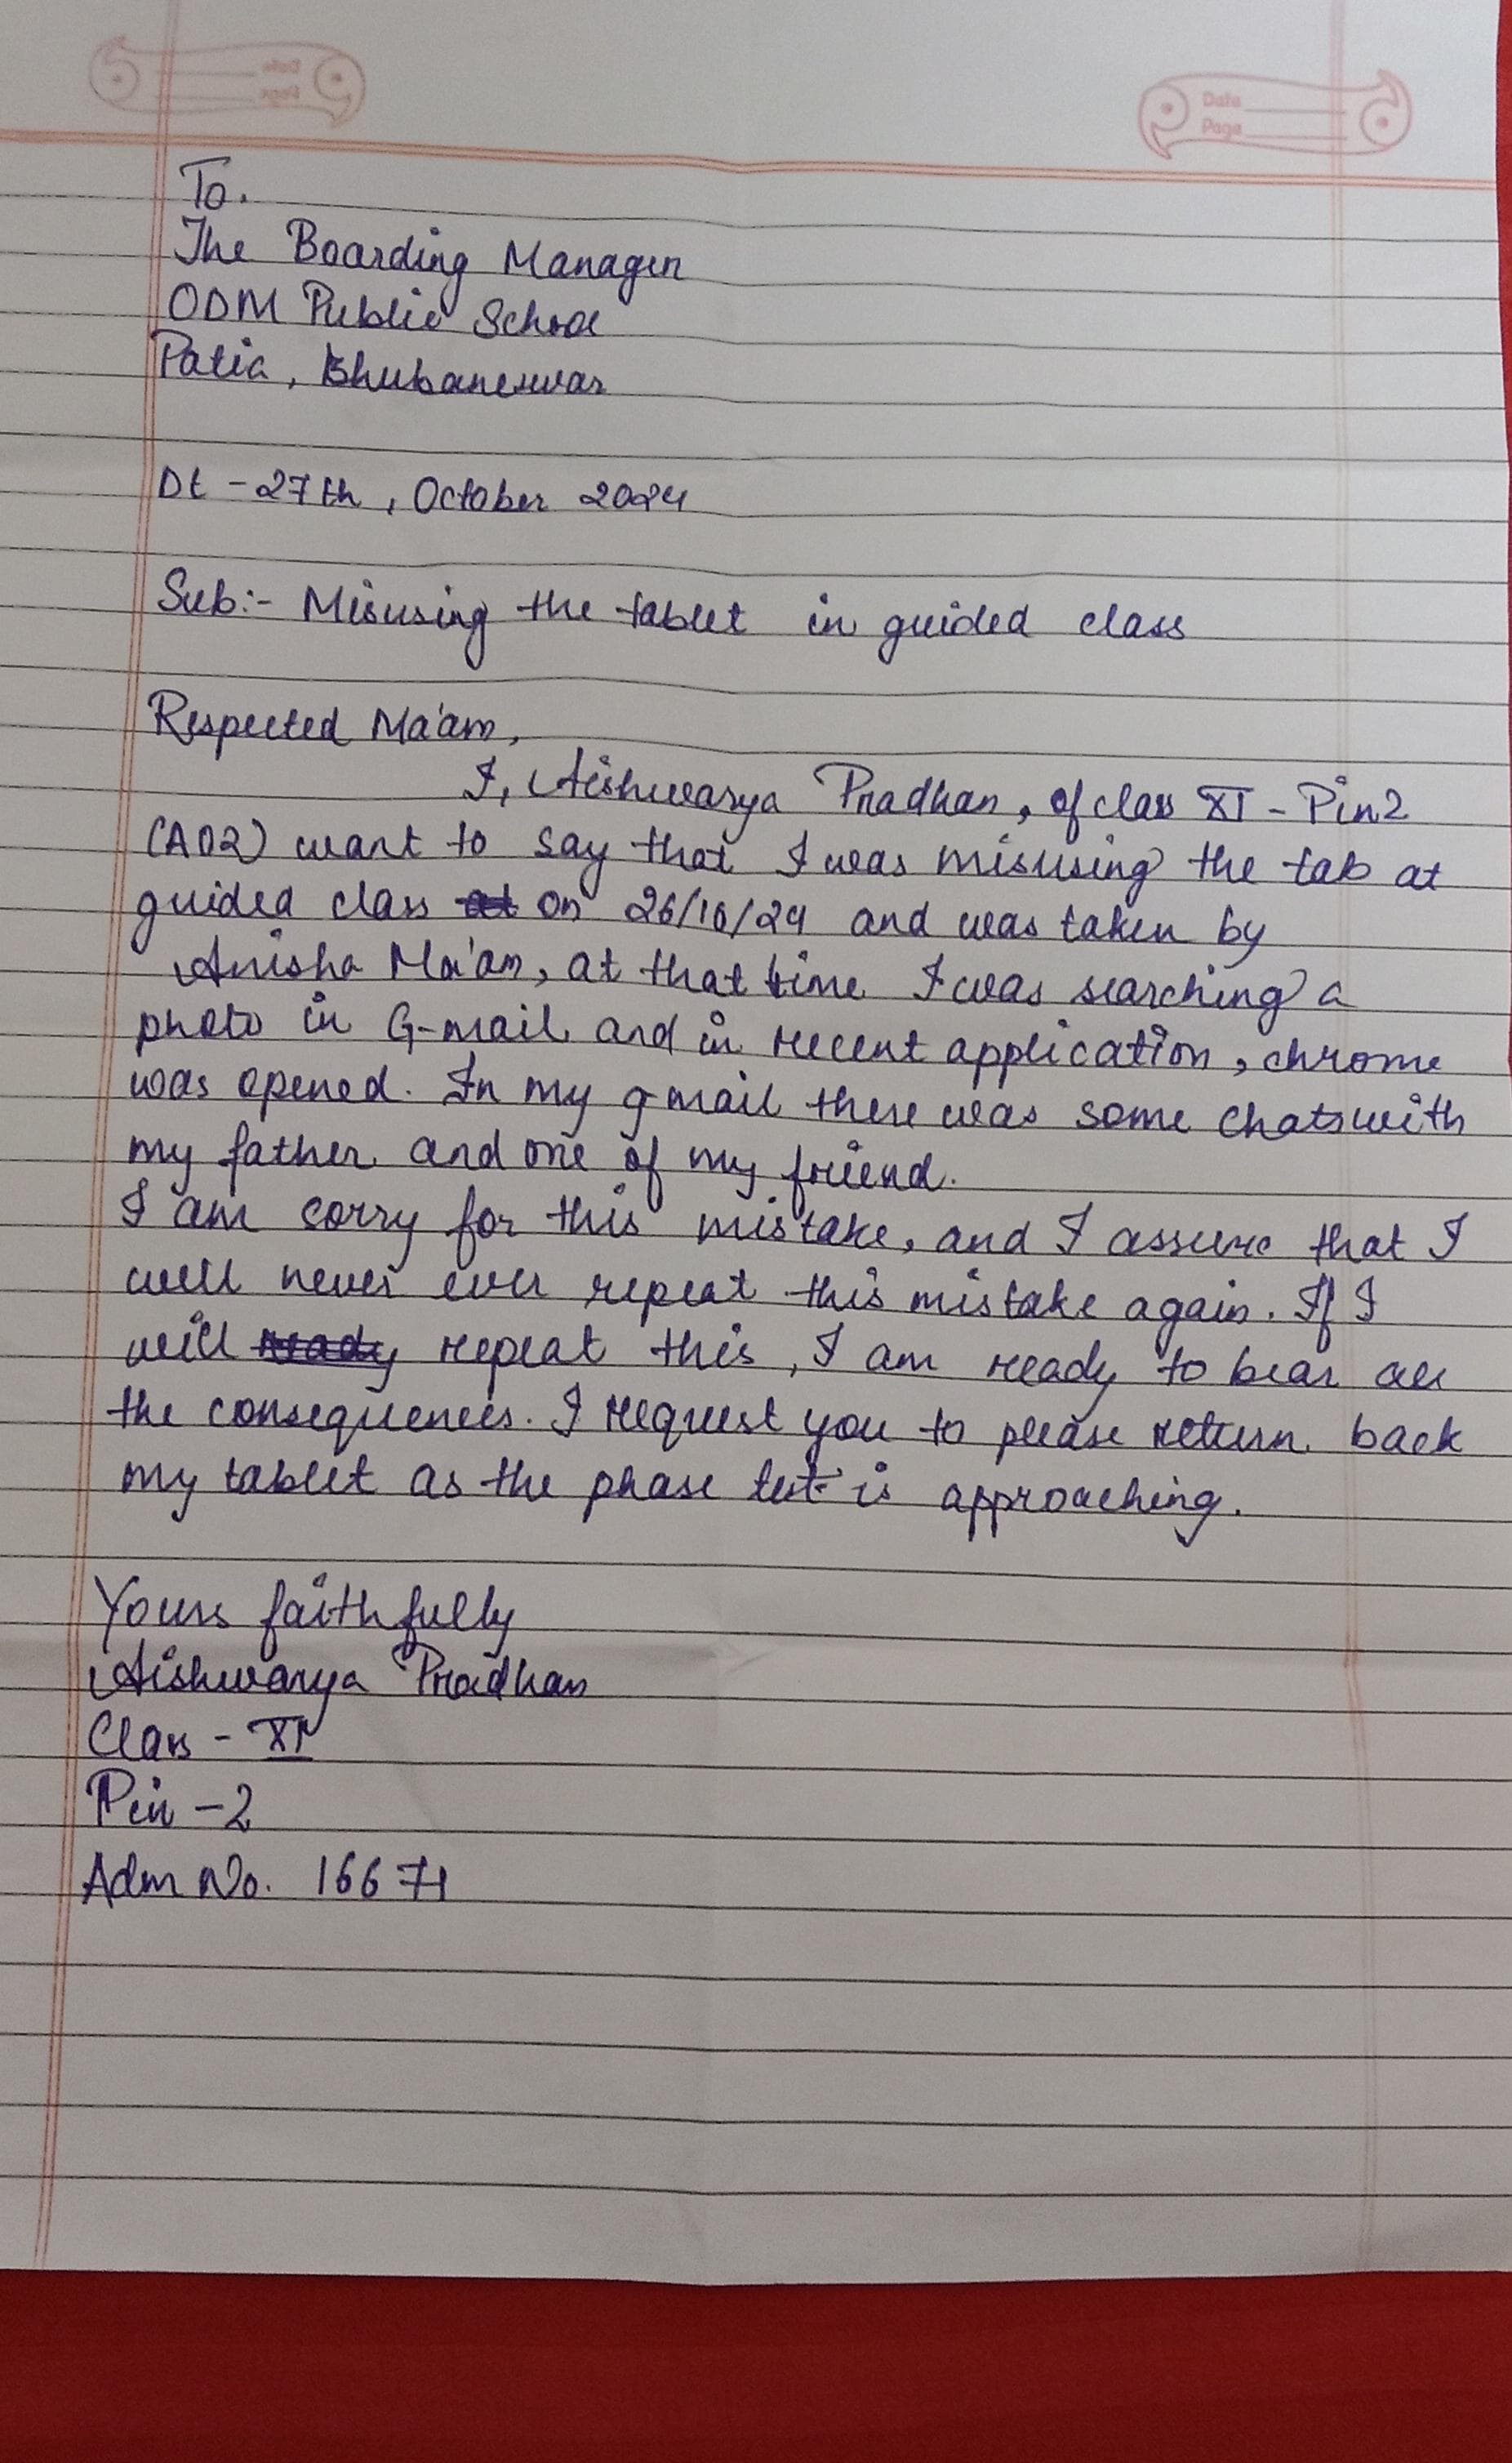 Date
Page
To.
The Boarding Manager
ODM Public School
Patia, Bhubaneswar
Dt - 27th, October 2024
Sub:- Misusing the tablet in guided class
Respected Ma'am,
I, Aishwarya Pradhan, of class XI - Pin2
(A02) want to say that I was misusing the tab at
guided class at on 26/10/24 and was taken by
Anisha Ma'am, at that time I was searching a
photo in G-mail and in recent application, chrome
was opened. In my gmail there was some chats with
my father and one of my friend.
I am sorry for this mistake, and I assure that I
will never ever repeat this mistake again. If I
will ready repeat this, I am ready to bear all
the consequences. I request you to please return back
my tablet as the phase test is approaching.
Yours faithfully
Aishwarya Pradhan
Class - XI
Pin - 2
Adm No. 16671